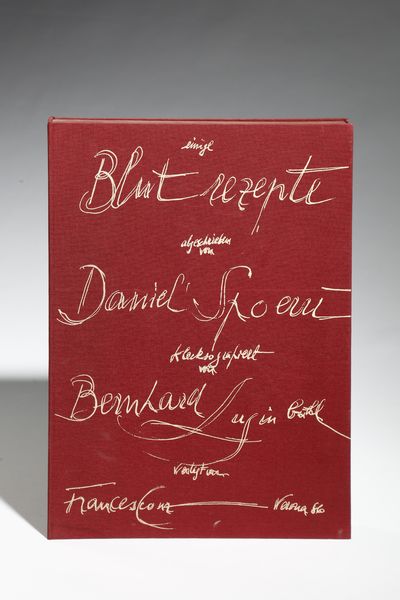 einige
Blut rezepte
abgeschrieben
von
Daniel Spoerri
klecksographiert
von
Bernhard Luginbühl
verlegt von
Francesco Conz Verona 86